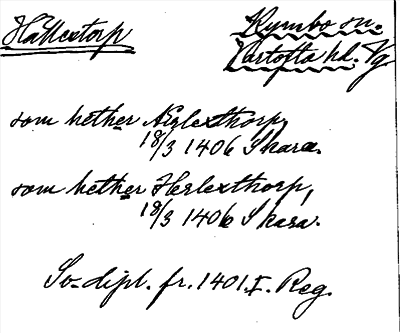 Hällestorp
Kymbo sn.
Vartofta hd. Vg
som hether Nirlexthorp,
18/3 1406 Skara.
som hether Herlexthorp,
18/3 1406 Skara.
Sv. dipl. fr. 1401. I. Reg.